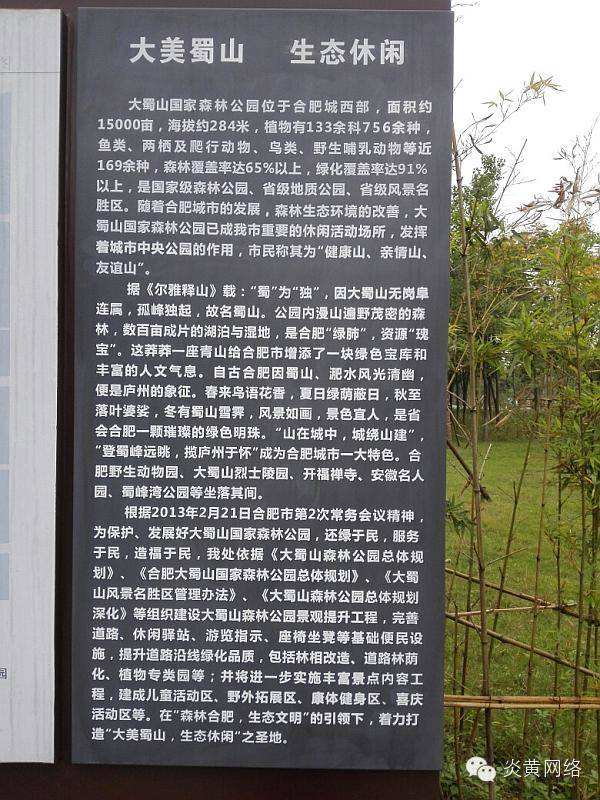 大美蜀山 生态休闲
大蜀山国家森林公园位于合肥城西部，面积约
15000亩，海拔约284米，植物有133余科756余种，
鱼类、两栖及爬行动物、鸟类、野生哺乳动物等近
169余种，森林覆盖率达65%以上，绿化覆盖率达91%
以上，是国家级森林公园、省级地质公园、省级风景名
胜区。随着合肥城市的发展，森林生态环境的改善，大
蜀山国家森林公园已成我市重要的休闲活动场所，发挥
着城市中央公园的作用，市民称其为“健康山、亲情山、
友谊山”。
据《尔雅释山》载：“蜀”为“独”，因大蜀山无岗阜
连属，孤峰独起，故名蜀山。公园内漫山遍野茂密的森
林，数百亩成片的湖泊与湿地，是合肥“绿肺”，资源“瑰
宝”。这莽莽一座青山给合肥市增添了一块绿色宝库和
丰富的人文气息。自古合肥因蜀山、淝水风光清幽，
便是庐州的象征。春来鸟语花香，夏日绿荫蔽日，秋至
落叶婆娑，冬有蜀山雪霁，风景如画，景色宜人，是省
会合肥一颗璀璨的绿色明珠。“山在城中，城绕山建”，
“登蜀峰远眺，揽庐州于怀”成为合肥城市一大特色。合
肥野生动物园、大蜀山烈士陵园、开福禅寺、安徽名人
园、蜀峰湾公园等坐落其间。
根据2013年2月21日合肥市第2次常务会议精神，
为保护、发展好大蜀山国家森林公园，还绿于民，服务
于民，造福于民，我处依据《大蜀山森林公园总体规
划》、《合肥大蜀山国家森林公园总体规划》、《大蜀
山风景名胜区管理办法》、《大蜀山森林公园总体规划
深化》等组织建设大蜀山森林公园景观提升工程，完善
道路、休闲驿站、游览指示、座椅坐凳等基础便民设
施，提升道路沿线绿化品质，包括林相改造、道路林荫
化、植物专类园等；并将进一步实施丰富景点内容工
程，建成儿童活动区、野外拓展区、康体健身区、喜庆
活动区等。在“森林合肥，生态文明”的引领下，着力打
造“大美蜀山，生态休闲”之圣地。
园
炎黄网络